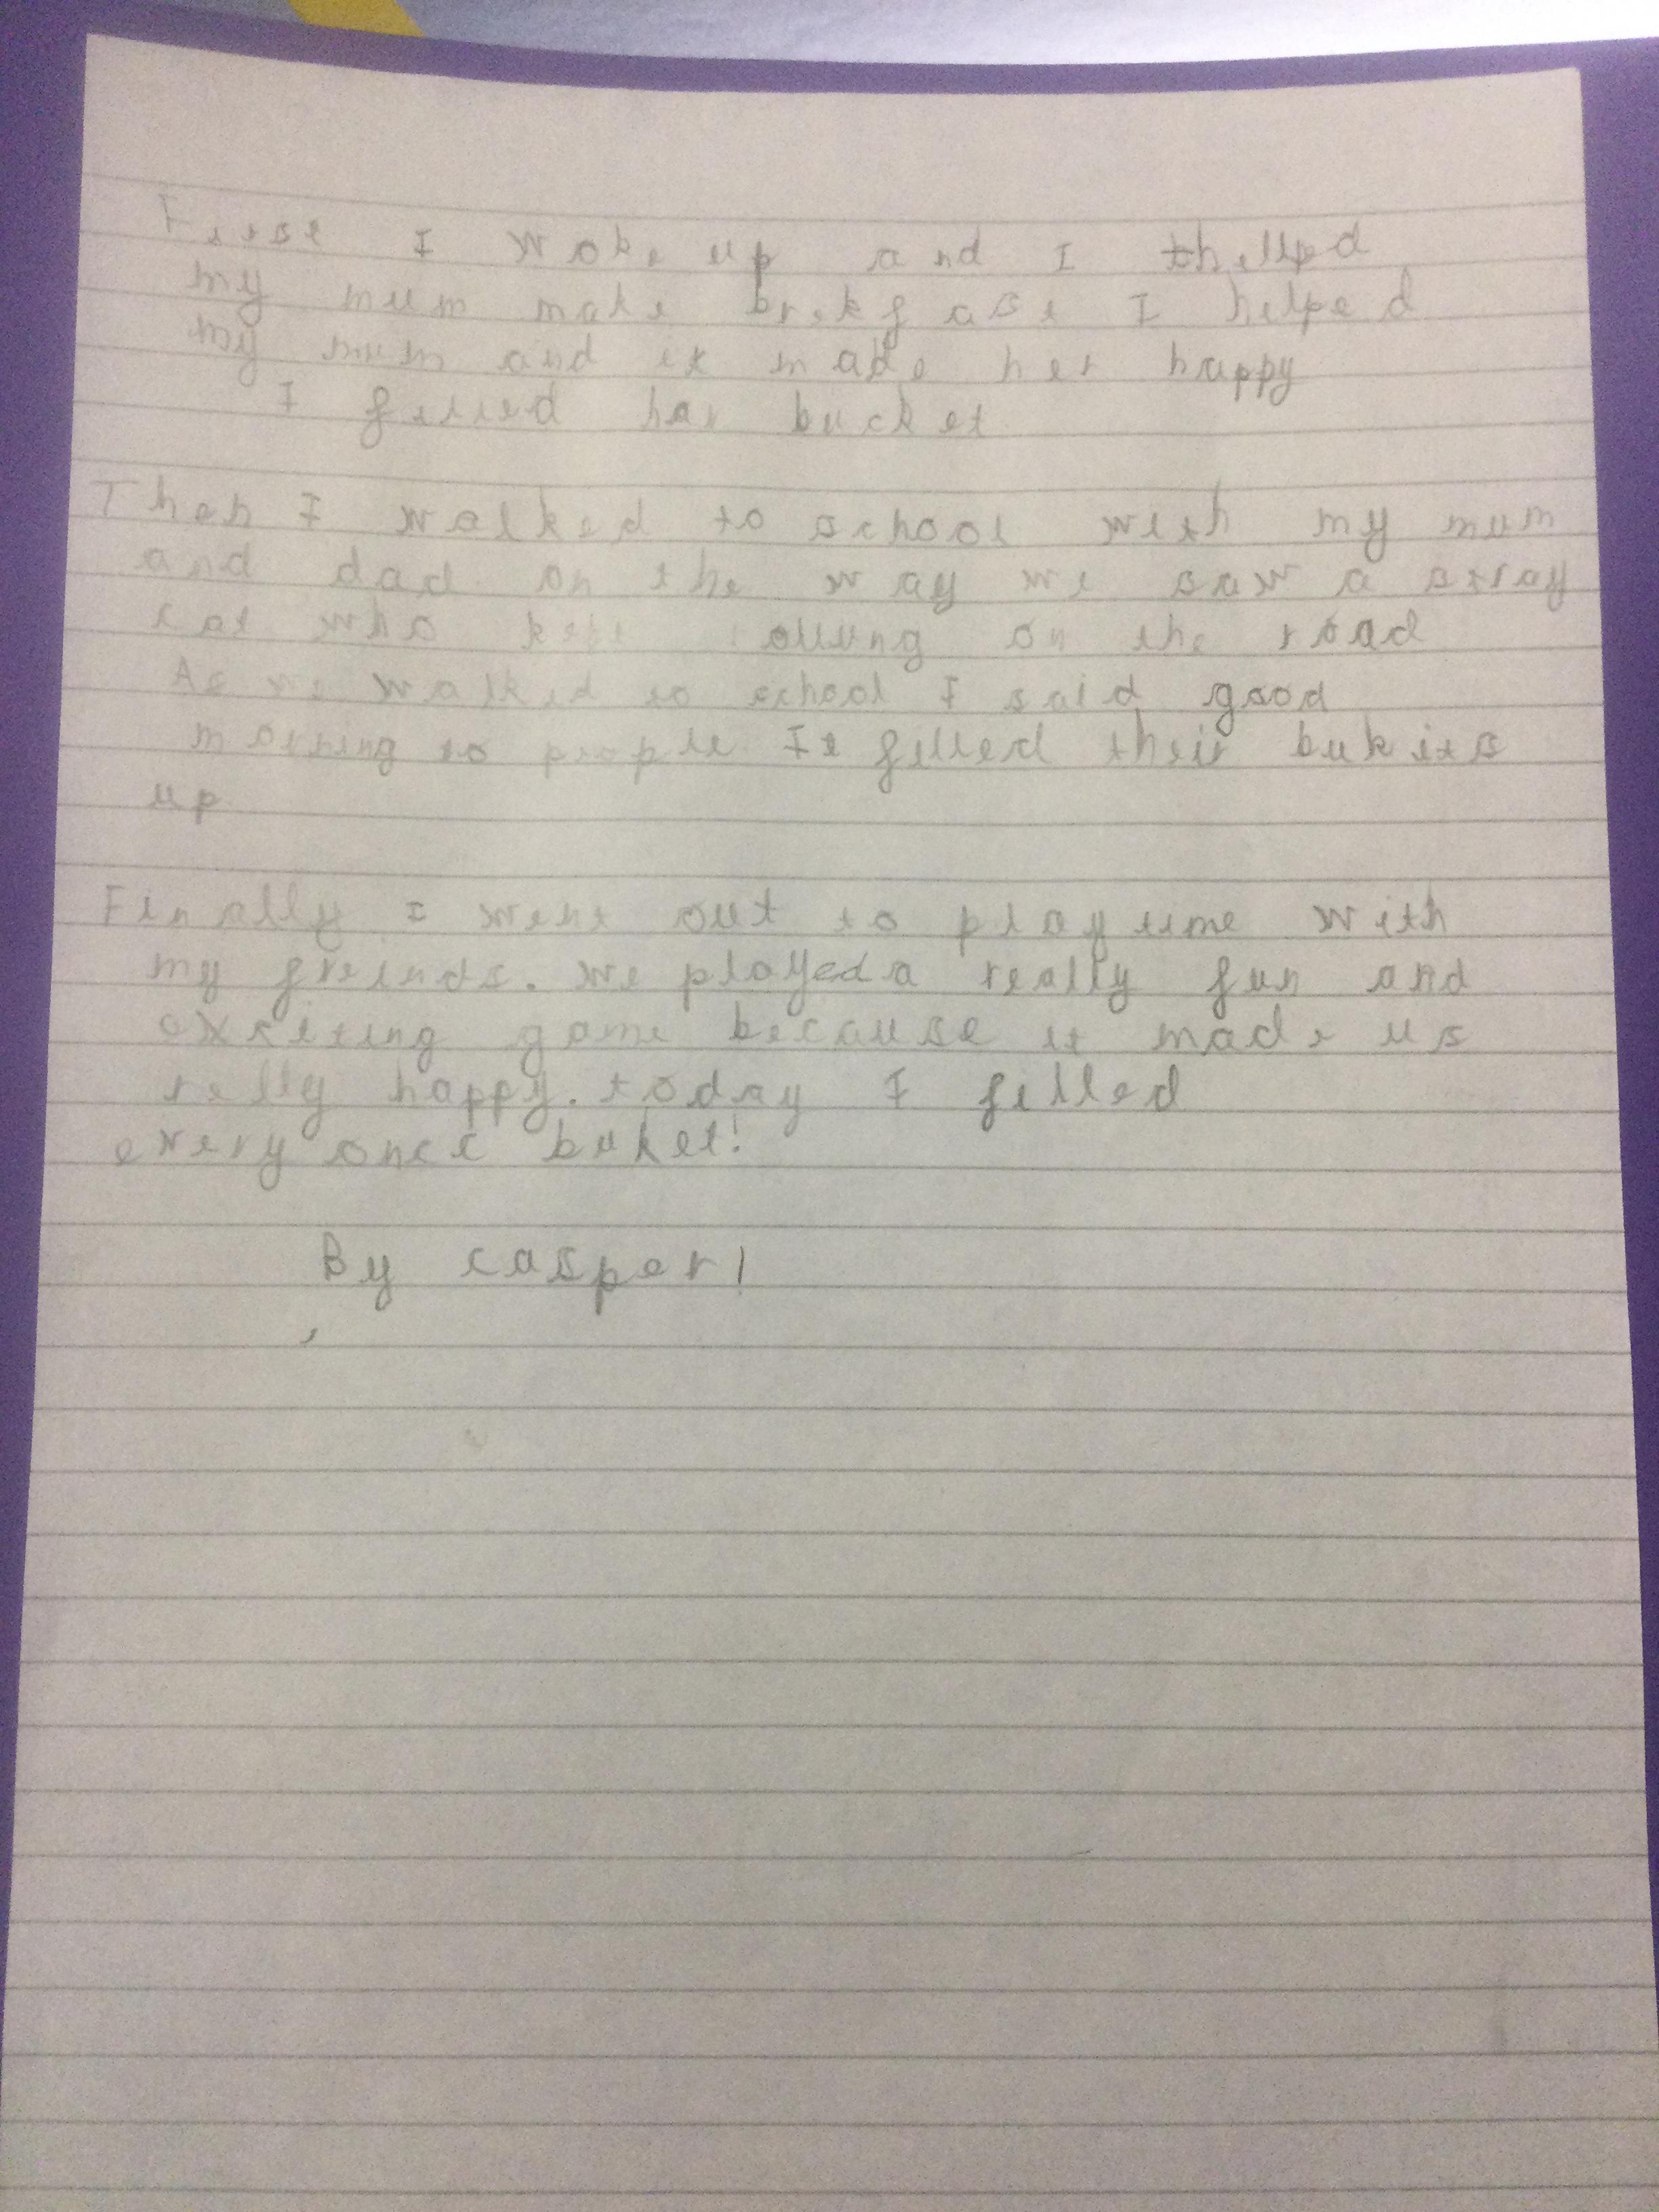 First I woke up and I thellped
my mum make brekfast I helped
my mum and it made her happy
I filled her bucket
Then I walked to school with my mum
and dad on the way we saw a stray
cat who kept rolling on the road
As we walked to school I said good
morning to people It filled their bukits
up
Finally I went out to play time with
my freinds. we played a really fun and
exciting game because it made us
relly happy. today I filled
every once buket!
By casper!